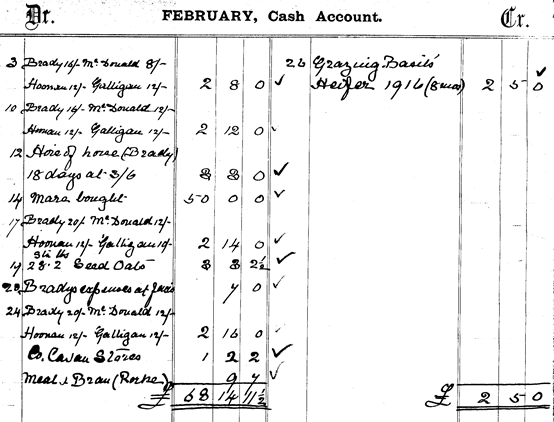 Dr. FEBRUARY, Cash Account. Cr.
3 Brady 16/- McDonald 8/- 26 Grazing Basil's
Hoonan 12/- Galligan 12/- 2 8 0 ✓ Heifer 1916 (8 mos) 2 5 0 ✓
10 Brady 16/- McDonald 12/-
Hoonan 12/- Galligan 12/- 2 12 0
12 Hire of horse (Brady)
18 days at 3/6 3 3 0 ✓
14 Mare bought 50 0 0 ✓
17 Brady 20/- McDonald 12/-
Hoonan 12/- Galligan 10/- 2 14 0 ✓
sts lbs
19 28.2 Seed Oats 3 3 2½ ✓
Bradys expenses at 7 0 ✓
24 Brady 20/- McDonald 12/-
Hoonan 12/- Galligan 12/- 2 16 0 ✓
Co. Cavan Stores 1 2 2 ✓
Meal & Bran (Rorke) 9 7 ✓
£ 68 14 11½ £ 2 5 0